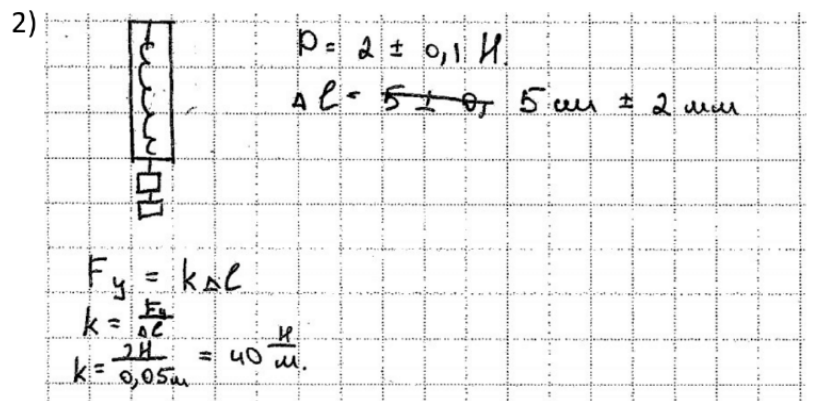 2)
P = 2 ± 0,1 Н.
Δl = 5 ± 0, 5 см ± 2 мм
Fу = kΔl
k = Fу/Δl
k = 2Н/0,05м = 40 Н/м.